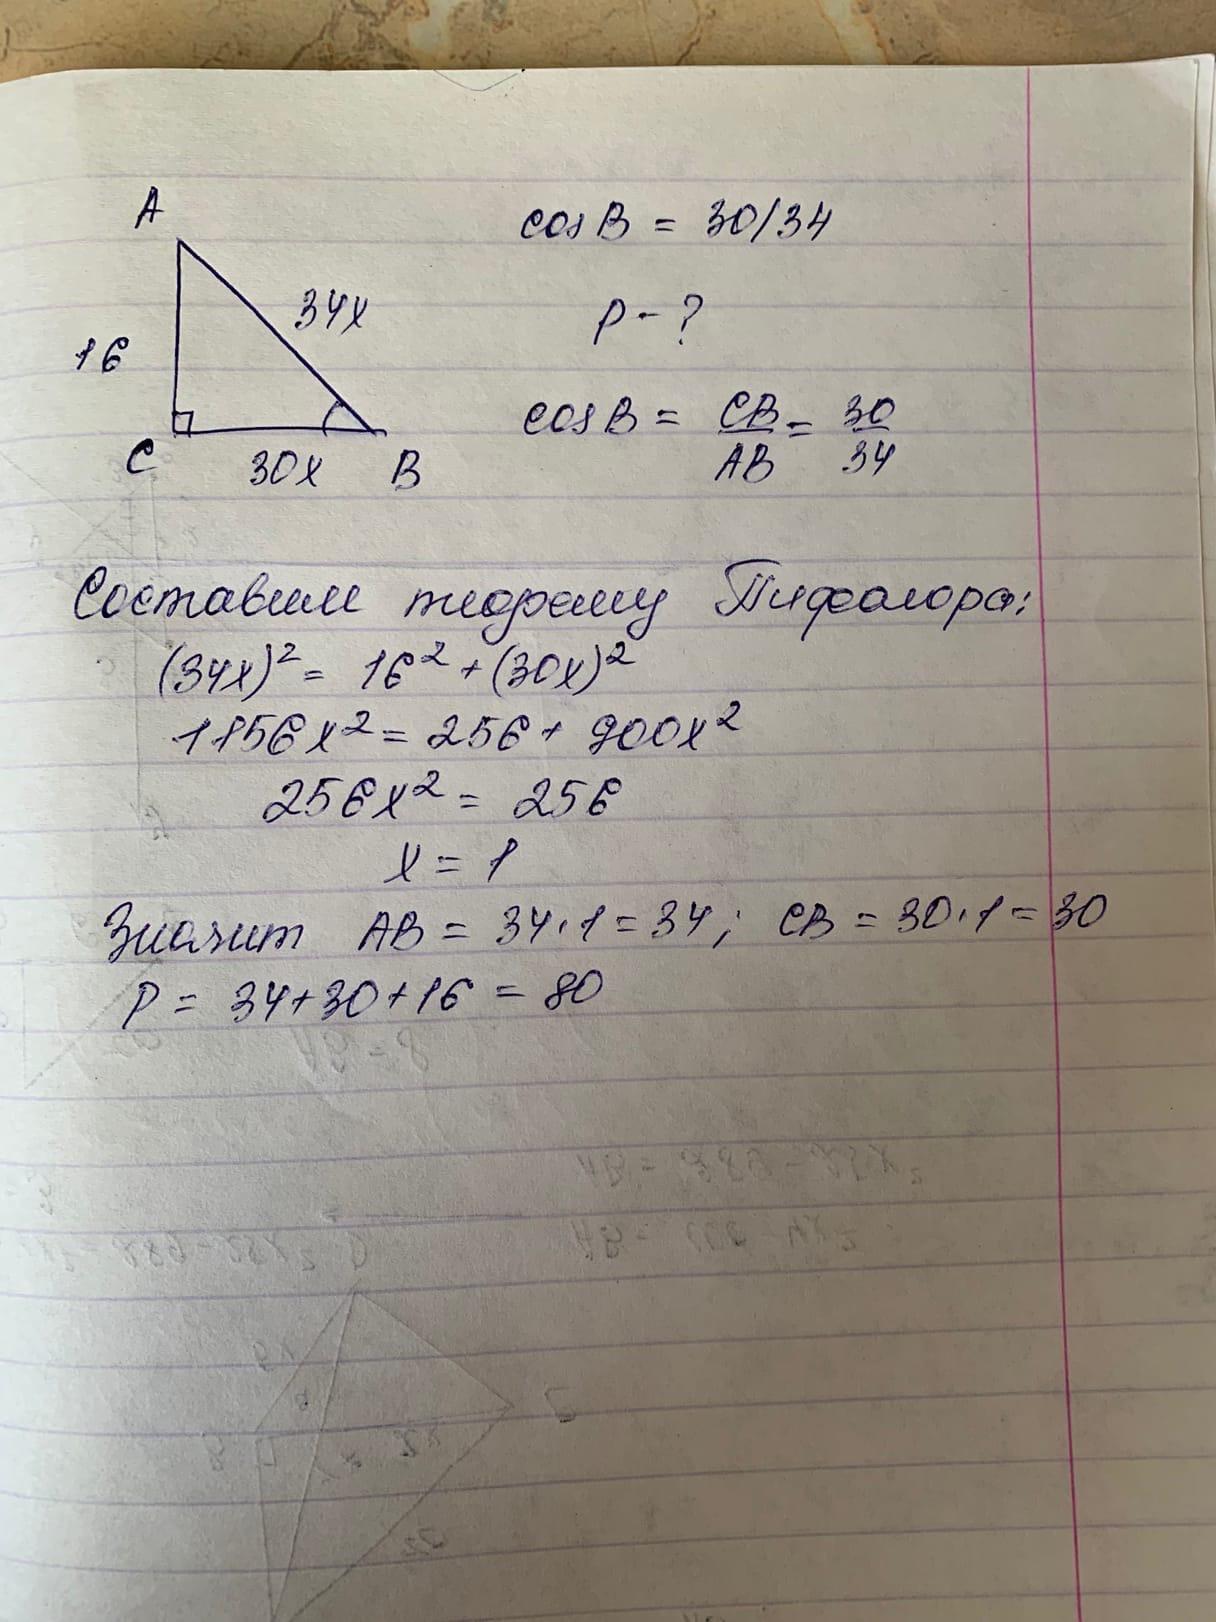 A
cos B = 30/34
34x
P - ?
16
cos B = CB/AB = 30/34
C
30x
B
Составим теорему Пифагора:
(34x)² = 16² + (30x)²
1156x² = 256 + 900x²
256x² = 256
x = 1
Значит AB = 34·1 = 34; CB = 30·1 = 30
P = 34+30+16 = 80